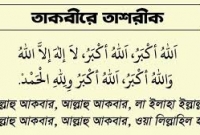 তাকবীরে তাশরীক
اَللهُ أَكْبَرُ، اَللهُ أَكْبَرُ، لَا إِلٰهَ إِلَّا اللهُ
وَاللهُ أَكْبَرُ، اَللهُ أَكْبَرُ وَلِلّٰهِ الْحَمْدُ
আকবার, আল্লাহু আকবার, লা ইলাহা
আকবার, আল্লাহু আকবার, ওয়া লিল্লাহিল